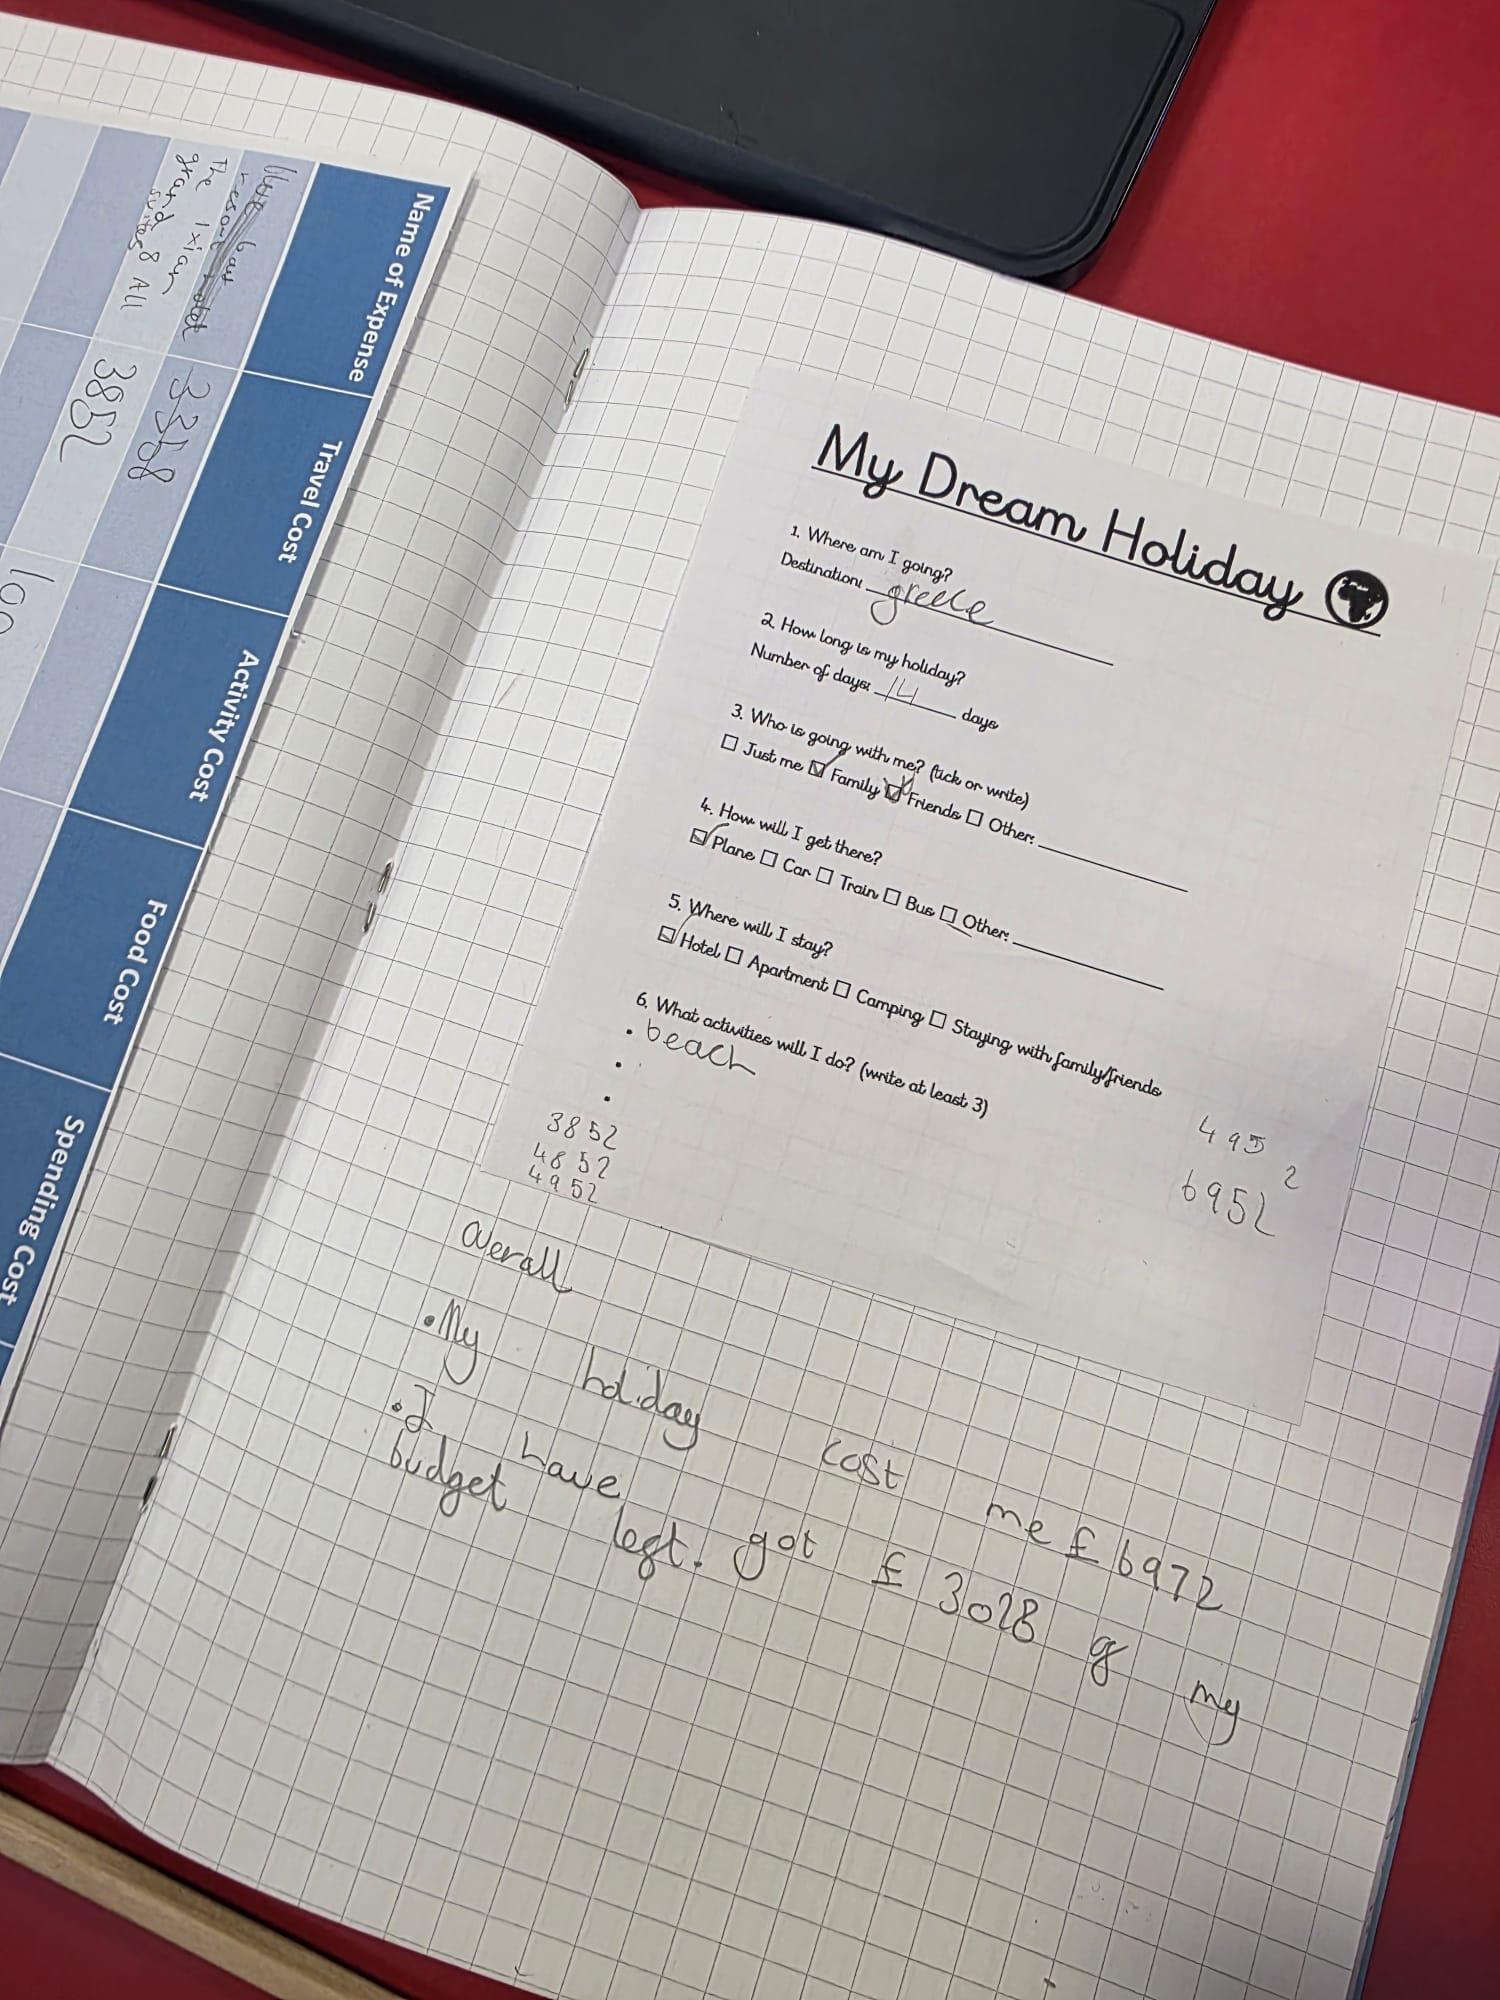 Name of Expense
Travel Cost
Activity Cost
Food Cost
Spending Cost
resort hotel
The Ixian
grand &
suites All
3358
3852
100
My Dream Holiday
1. Where am I going?
Destination: greece
2. How long is my holiday?
Number of days: 14 days
3. Who is going with me? (tick or write)
☐ Just me ☑ Family ☑ Friends ☐ Other:
4. How will I get there?
☑ Plane ☐ Car ☐ Train ☐ Bus ☐ Other:
5. Where will I stay?
☑ Hotel ☐ Apartment ☐ Camping ☐ Staying with family/friends
6. What activities will I do? (write at least 3)
• beach
•
•
3852
4852
4952
4952
6952
Overall
• My holiday cost me £6972
• I have got £3028 of my
budget left.